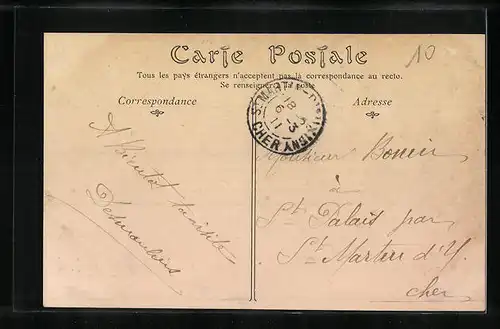 Carte Postale
10
Tous les pays étrangers n'acceptent pas la correspondance au recto.
Se renseigner à la poste
Correspondance
Adresse
ST MARTIN-D'AUXIGNY
18 -3
6 11
CHER
A Bientôt ta visite
Desmoulins
Monsieur
à
St Palais par
St Martin d'Y
Cher